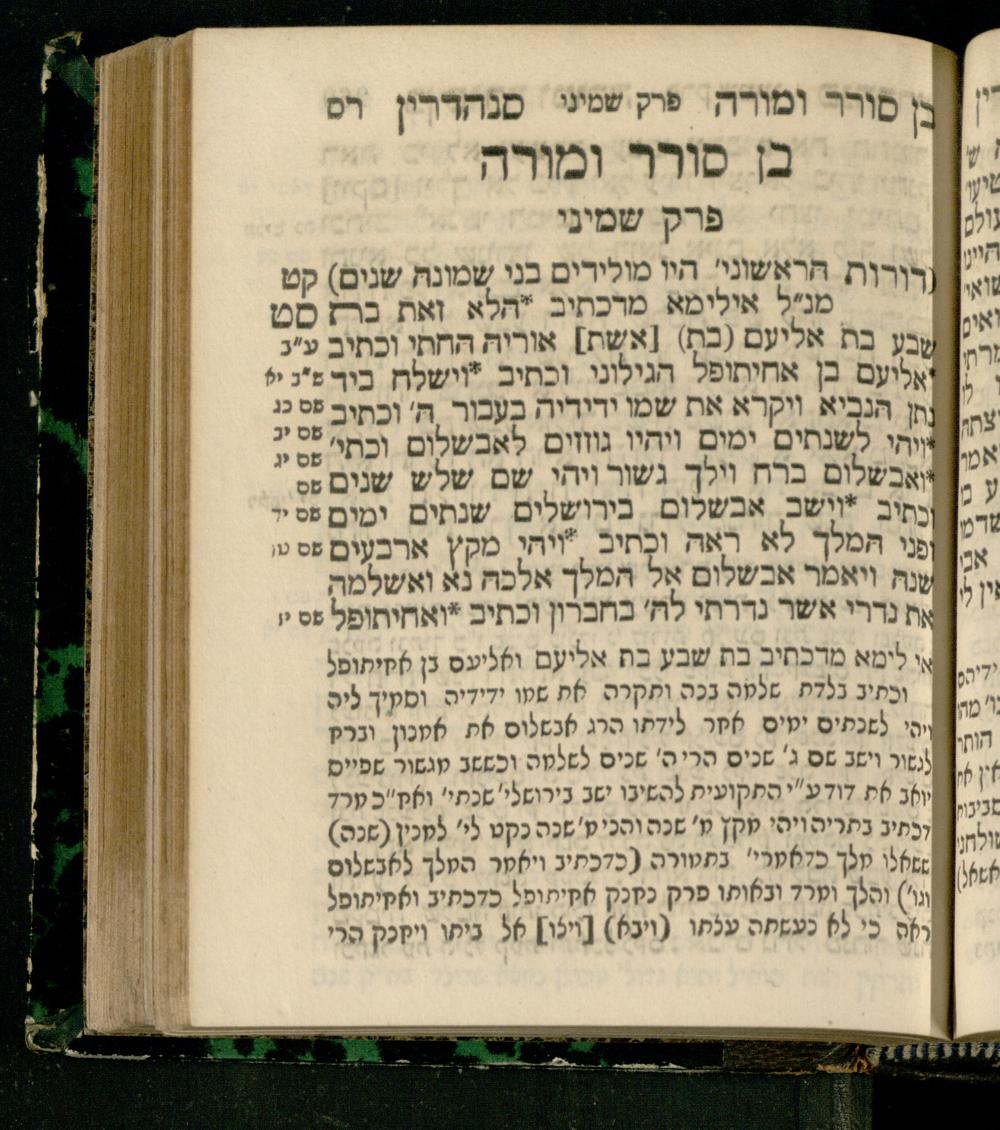 בן סורר ומורה פרק שמיני סנהדרין רס
בן סורר ומורה
פרק שמיני
(דורות הראשוני׳ היו מולידים בני שמונה שנים) קט
מנ״ל אילימא מדכתיב *הלא זאת ברת סט
שבע בת אליעם (בת) [אשת] אוריה החתי וכתיב ע״ב
*אליעם בן אחיתופל הגילוני וכתיב *וישלח ביד ש״ב יא
נתן הנביא ויקרא את שמו ידידיה בעבור ה׳ וכתיב שם כג
*ויהי לשנתים ימים ויהיו גוזזים לאבשלום וכתי׳ שם יב
*ואבשלום ברח וילך גשור ויהי שם שלש שנים שם יג
וכתיב *וישב אבשלום בירושלים שנתים ימים שם
ופני המלך לא ראה וכתיב *ויהי מקץ ארבעים שם יד
שנה ויאמר אבשלום אל המלך אלכה נא ואשלמה שם טו
את נדרי אשר נדרתי לה׳ בחברון וכתיב *ואחיתופל שם יז
אי לימא מדכתיב בת שבע בת אליעם ואליעם בן אחיתופל
וכתיב בלדת שלמה בכה ותקרה את שמו ידידיה וסמיך ליה
ויהי לשנתים ימים אחר לידתו הרג אבשלום את אמנון וברח
לגשור וישב שם ג׳ שנים הרי ה׳ שנים לשלמה וכששב מגשור שפייס
יואב את דוד ע״י התקועית להשיבו ישב בירושלי׳ שנתי׳ ואח״כ מרד
דכתיב בתריה ויהי מקץ מ׳ שנה והכי מ׳ שנה נקט לי׳ למנין (שנה)
ששאלו מלך כדאמרי׳ בתמורה (כדכתיב ויאמר המלך לאבשלום
וגו׳) והלך ומרד ובאותו פרק נחנק אחיתופל כדכתיב ואחיתופל
ראה כי לא נעשתה עצתו (ויבא) [וילך] אל ביתו ויחנק הרי